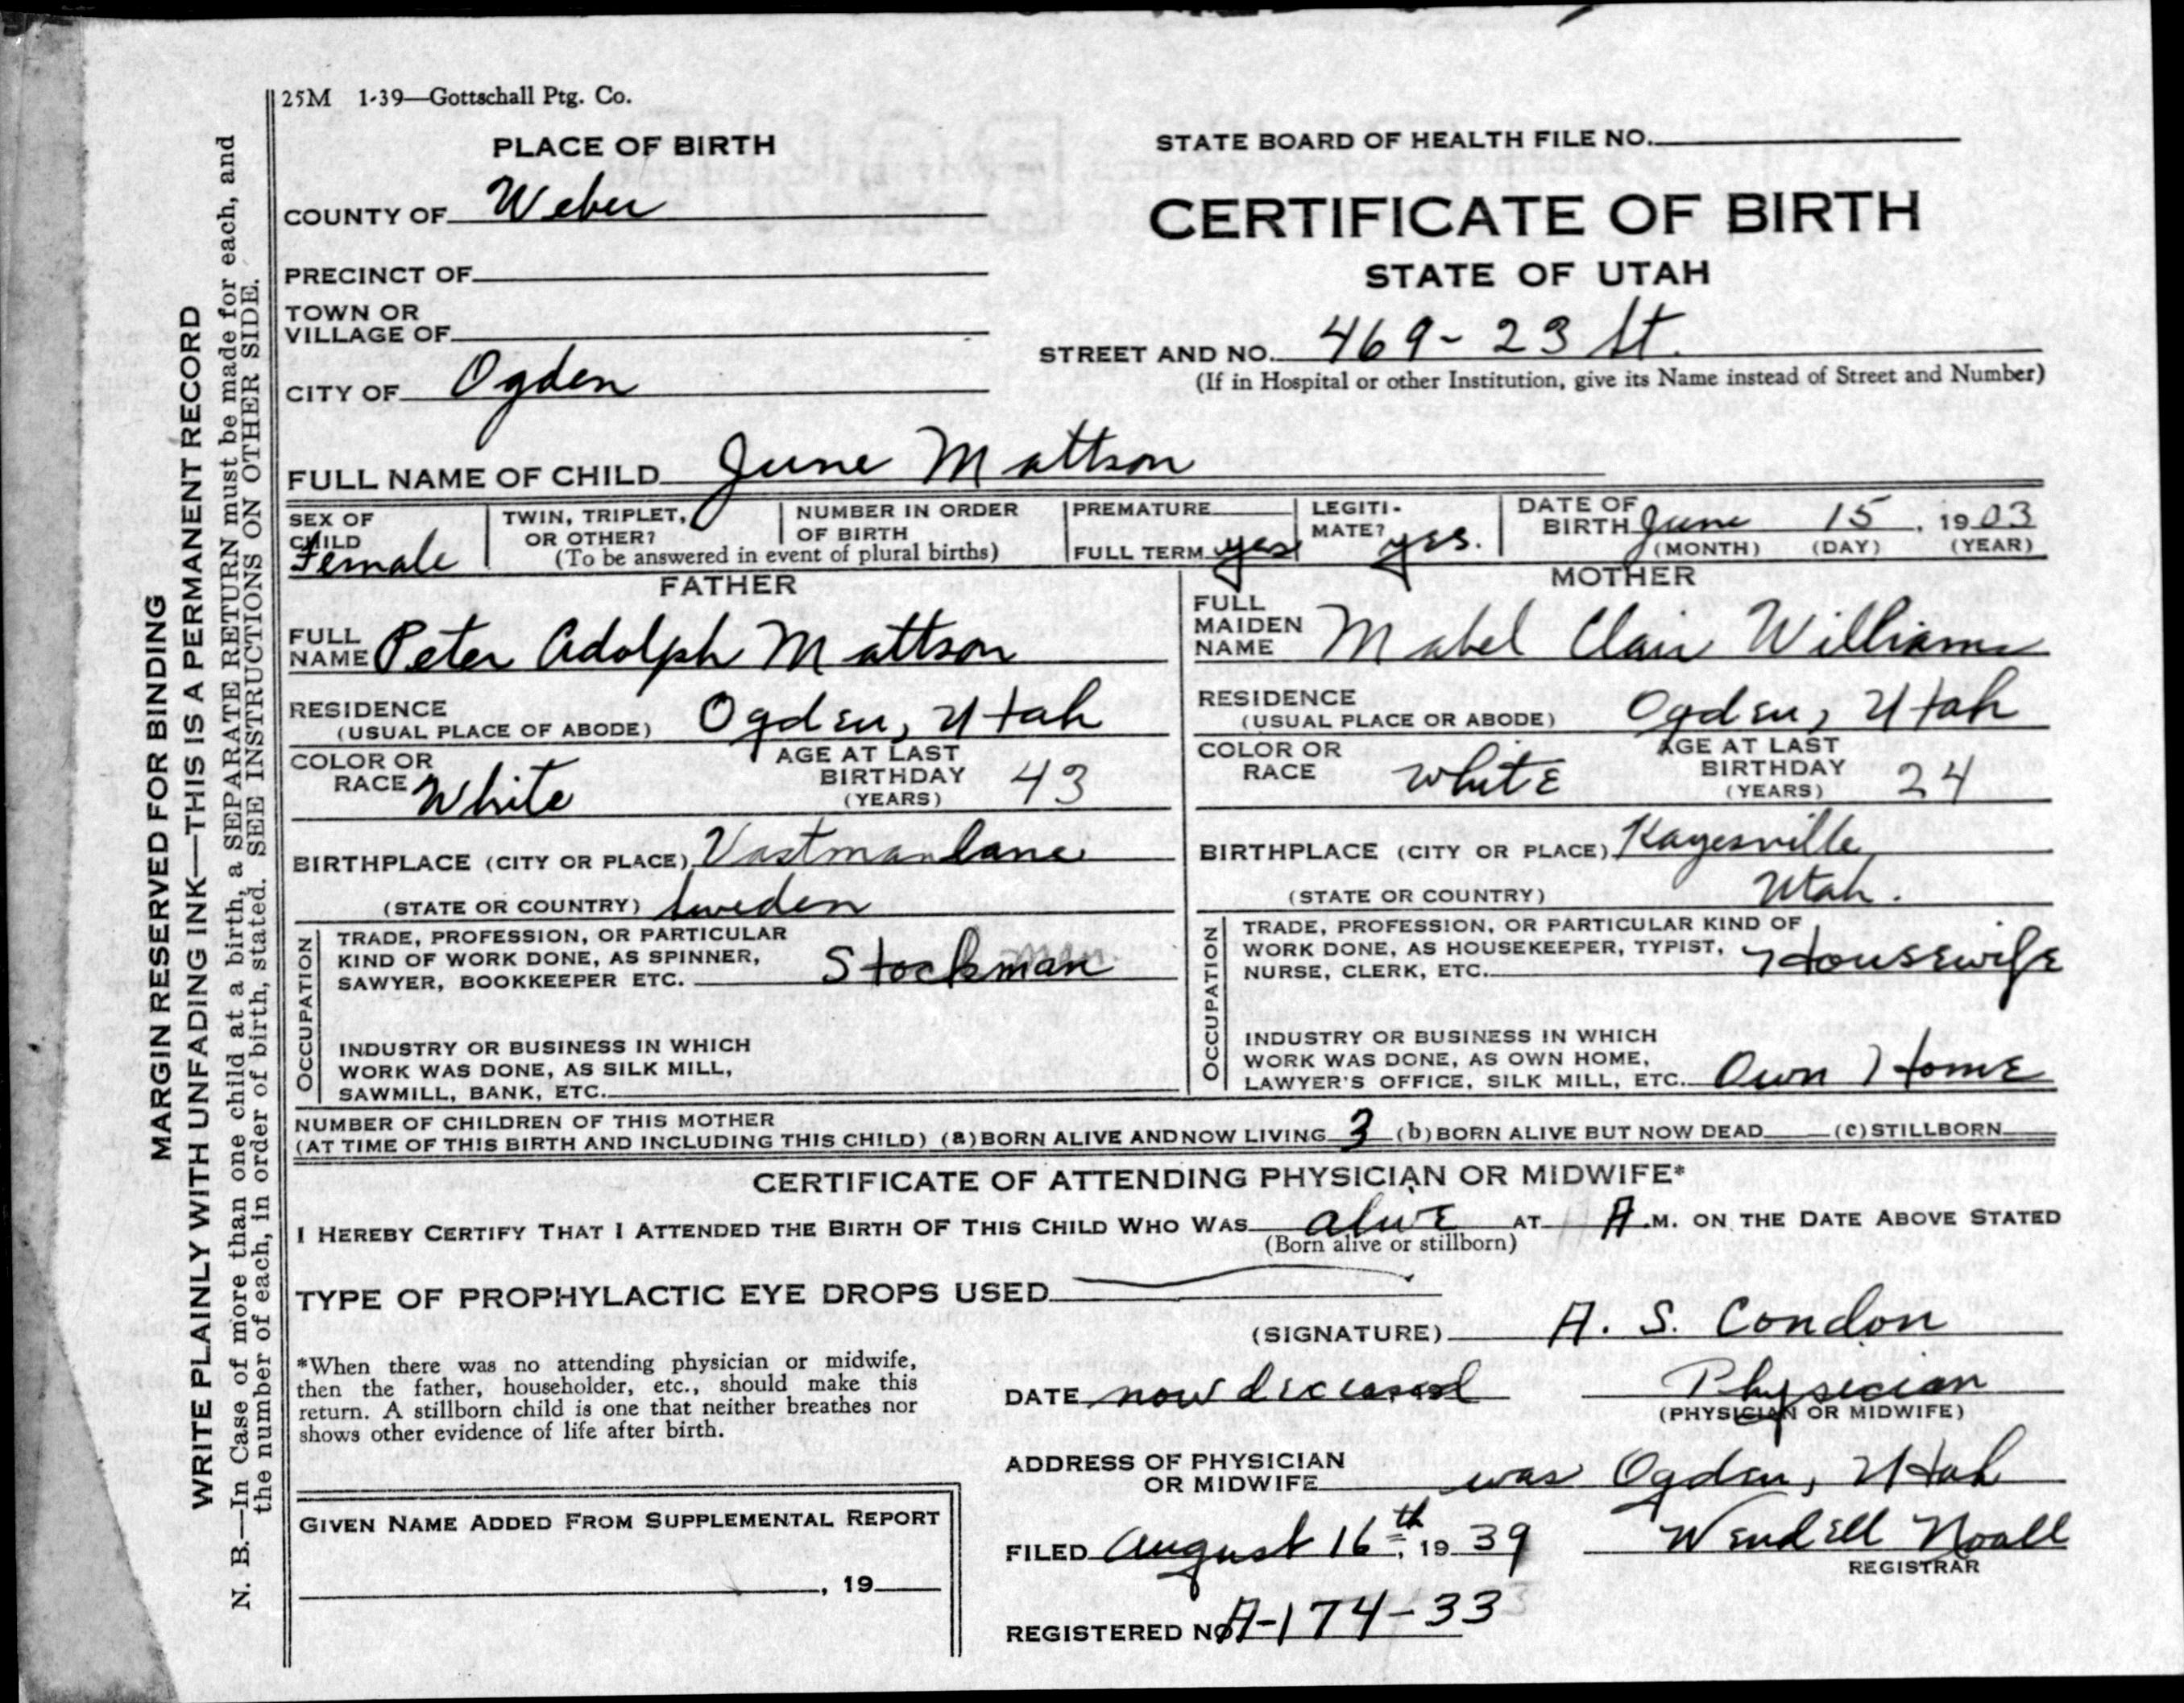 25M 1-39—Gottschall Ptg. Co.
PLACE OF BIRTH
STATE BOARD OF HEALTH FILE NO.
COUNTY OF Weber
CERTIFICATE OF BIRTH
PRECINCT OF
STATE OF UTAH
TOWN OR
VILLAGE OF
STREET AND NO. 469 - 23 St.
(If in Hospital or other Institution, give its Name instead of Street and Number)
CITY OF Ogden
FULL NAME OF CHILD June Mattson
SEX OF
CHILD
Female
TWIN, TRIPLET,
OR OTHER?
NUMBER IN ORDER
OF BIRTH
(To be answered in event of plural births)
PREMATURE
FULL TERM yes
LEGITI-
MATE? yes.
DATE OF
BIRTH June 15, 1903
(MONTH) (DAY) (YEAR)
FATHER
FULL
NAME Peter Adolph Mattson
RESIDENCE
(USUAL PLACE OF ABODE) Ogden, Utah
COLOR OR
RACE White
AGE AT LAST
BIRTHDAY 43
(YEARS)
BIRTHPLACE (CITY OR PLACE) Vastmanlane
(STATE OR COUNTRY) Sweden
OCCUPATION
TRADE, PROFESSION, OR PARTICULAR
KIND OF WORK DONE, AS SPINNER,
SAWYER, BOOKKEEPER ETC. Stockman
INDUSTRY OR BUSINESS IN WHICH
WORK WAS DONE, AS SILK MILL,
SAWMILL, BANK, ETC.
MOTHER
FULL
MAIDEN
NAME Mabel Clair Williams
RESIDENCE
(USUAL PLACE OR ABODE) Ogden, Utah
COLOR OR
RACE White
AGE AT LAST
BIRTHDAY 24
(YEARS)
BIRTHPLACE (CITY OR PLACE) Kayesville
(STATE OR COUNTRY) Utah.
OCCUPATION
TRADE, PROFESSION, OR PARTICULAR KIND OF
WORK DONE, AS HOUSEKEEPER, TYPIST,
NURSE, CLERK, ETC. Housewife
INDUSTRY OR BUSINESS IN WHICH
WORK WAS DONE, AS OWN HOME,
LAWYER'S OFFICE, SILK MILL, ETC. Own Home
NUMBER OF CHILDREN OF THIS MOTHER
(AT TIME OF THIS BIRTH AND INCLUDING THIS CHILD) (a) BORN ALIVE AND NOW LIVING 3 (b) BORN ALIVE BUT NOW DEAD (c) STILLBORN
CERTIFICATE OF ATTENDING PHYSICIAN OR MIDWIFE*
I HEREBY CERTIFY THAT I ATTENDED THE BIRTH OF THIS CHILD WHO WAS alive AT A.M. ON THE DATE ABOVE STATED
(Born alive or stillborn)
TYPE OF PROPHYLACTIC EYE DROPS USED
(SIGNATURE) A. S. Condon
*When there was no attending physician or midwife,
then the father, householder, etc., should make this
return. A stillborn child is one that neither breathes nor
shows other evidence of life after birth.
DATE now deceased Physician
(PHYSICIAN OR MIDWIFE)
ADDRESS OF PHYSICIAN
OR MIDWIFE was Ogden, Utah
GIVEN NAME ADDED FROM SUPPLEMENTAL REPORT
, 19
FILED August 16th, 1939 Wendell Noall
REGISTRAR
REGISTERED NO. A-174-33
MARGIN RESERVED FOR BINDING
WRITE PLAINLY WITH UNFADING INK—THIS IS A PERMANENT RECORD
N. B.—In Case of more than one child at a birth, a SEPARATE RETURN must be made for each, and
the number of each, in order of birth, stated. SEE INSTRUCTIONS ON OTHER SIDE.